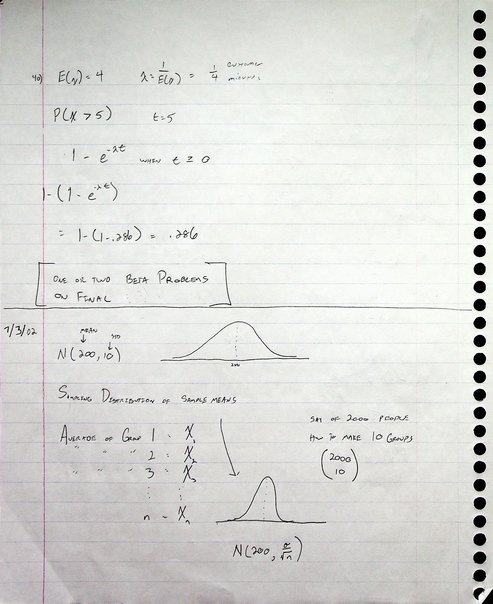 40) E(x) = 4 λ = 1/E(x) = 1/4 customer minutes
P(X > 5) t = 5
1 - e^-λt when t ≥ 0
1-(1 - e^-λt)
= 1-(1-.286) = .286
One or two Beta Problems
on Final
7/3/02
mean std
N(200, 10)
200
Sampling Distribution of sample means
Average of Group 1 = X̄₁
" " " 2 = X̄₂
" " " 3 = X̄₃
n - X̄ₙ
say of 2000 people
how to make 10 groups
(2000
10)
N(200, σ/√n)